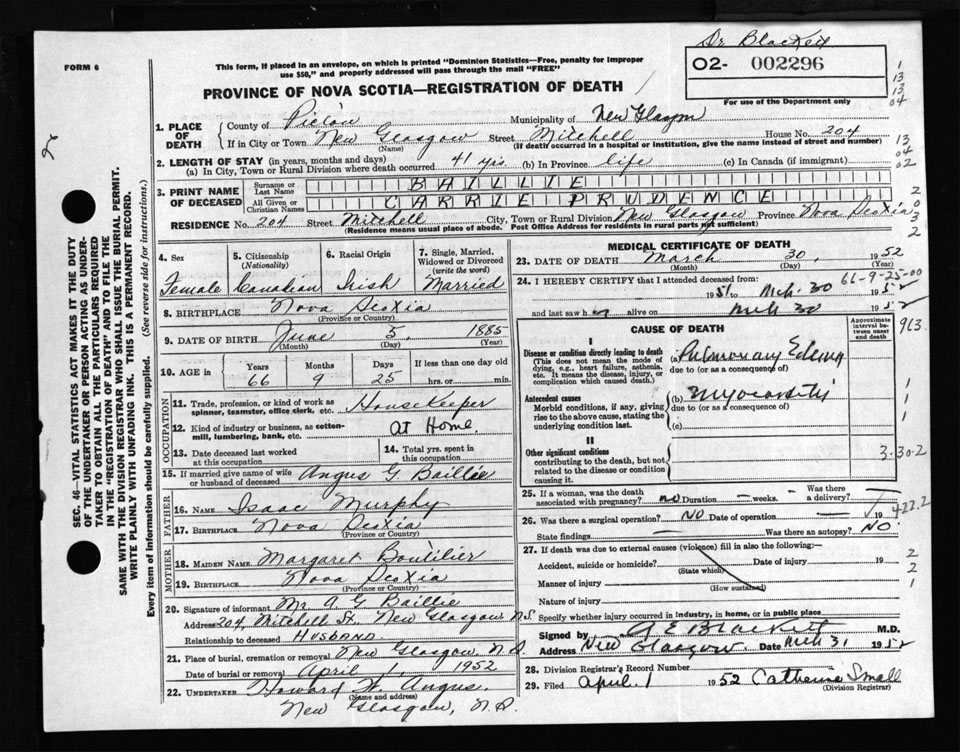 Dr Blackett
FORM 6
This form, if placed in an envelope, on which is printed "Dominion Statistics—Free, penalty for improper
use $50," and properly addressed will pass through the mail "FREE"
O2- 002296
For use of the Department only
PROVINCE OF NOVA SCOTIA—REGISTRATION OF DEATH
1. PLACE OF DEATH
County of Pictou Municipality of New Glasgow
If in City or Town New Glasgow Street Mitchell House No. 204
(Name) (If death occurred in a hospital or institution, give the name instead of street and number)
2. LENGTH OF STAY (in years, months and days)
(a) In City, Town or Rural Division where death occurred 41 yrs. (b) In Province life (c) In Canada (if immigrant)
3. PRINT NAME OF DECEASED
Surname or Last Name BAILLIE
All Given or Christian Names CARRIE PRUDENCE
RESIDENCE No. 204 Street Mitchell City, Town or Rural Division New Glasgow Province Nova Scotia
(Residence means usual place of abode. Post Office Address for residents in rural parts not sufficient)
4. Sex Female
5. Citizenship (Nationality) Canadian
6. Racial Origin Irish
7. Single, Married, Widowed or Divorced (write the word) Married
8. BIRTHPLACE Nova Scotia
(Province or Country)
9. DATE OF BIRTH June 5, 1885
(Month) (Day) (Year)
10. AGE in Years 66 Months 9 Days 25 If less than one day old hrs. or min.
OCCUPATION
11. Trade, profession, or kind of work as spinner, teamster, office clerk, etc. Housekeeper
12. Kind of industry or business, as cotton-mill, lumbering, bank, etc. At Home.
13. Date deceased last worked at this occupation
14. Total yrs. spent in this occupation
15. If married give name of wife or husband of deceased Angus G Baillie
FATHER
16. Name Isaac Murphy
17. Birthplace Nova Scotia
(Province or Country)
MOTHER
18. Maiden Name Margaret Boutilier
19. Birthplace Nova Scotia
(Province or Country)
20. Signature of informant Mr. A G Baillie
Address 204, Mitchell St, New Glasgow N.S.
Relationship to deceased HUSBAND
21. Place of burial, cremation or removal New Glasgow, N.S.
Date of burial or removal April 1, 1952
22. UNDERTAKER Howard W. Angus.
(Name and address)
New Glasgow, N.S.
MEDICAL CERTIFICATE OF DEATH
23. DATE OF DEATH March 30, 1952
(Month) (Day) (Year)
66-9-25-00
24. I HEREBY CERTIFY that I attended deceased from:
1951 to Mch. 30 1952
and last saw her alive on Mch 30 1952
CAUSE OF DEATH
Approximate interval between onset and death
I
Disease or condition directly leading to death
(This does not mean the mode of dying, e.g., heart failure, asthenia, etc. It means the disease, injury, or complication which caused death.)
(a) Pulmonary Edema
due to (or as a consequence of)
Antecedent causes
Morbid conditions, if any, giving rise to the above cause, stating the underlying condition last.
(b) Myocarditis
due to (or as a consequence of)
(c)
II
Other significant conditions
contributing to the death, but not related to the disease or condition causing it.
3.30.2
25. If a woman, was the death associated with pregnancy? no Duration — weeks. — Was there a delivery? —
26. Was there a surgical operation? NO Date of operation — 19
422.2
State findings — Was there an autopsy? NO
27. If death was due to external causes (violence) fill in also the following:—
Accident, suicide or homicide? Date of injury 19
(State which)
Manner of injury
(How sustained)
Nature of injury
Specify whether injury occurred in industry, in home, or in public place
Signed by A E Blackett M.D.
Address New Glasgow. Date Mch 31 1952
28. Division Registrar's Record Number
29. Filed April 1 1952 Catherine Small
(Division Registrar)
SEC. 46—VITAL STATISTICS ACT MAKES IT THE DUTY
OF THE UNDERTAKER OR PERSON ACTING AS UNDER-
TAKER TO OBTAIN ALL THE PARTICULARS REQUIRED
IN THE "REGISTRATION OF DEATH" AND TO FILE THE
SAME WITH THE DIVISION REGISTRAR WHO SHALL ISSUE THE BURIAL PERMIT.
WRITE PLAINLY WITH UNFADING INK. THIS IS A PERMANENT RECORD.
Every item of information should be carefully supplied. (See reverse side for instructions.)
1
13
13
04
13
04
02
2
0
3
2
963.
1
1
1
2
2
1